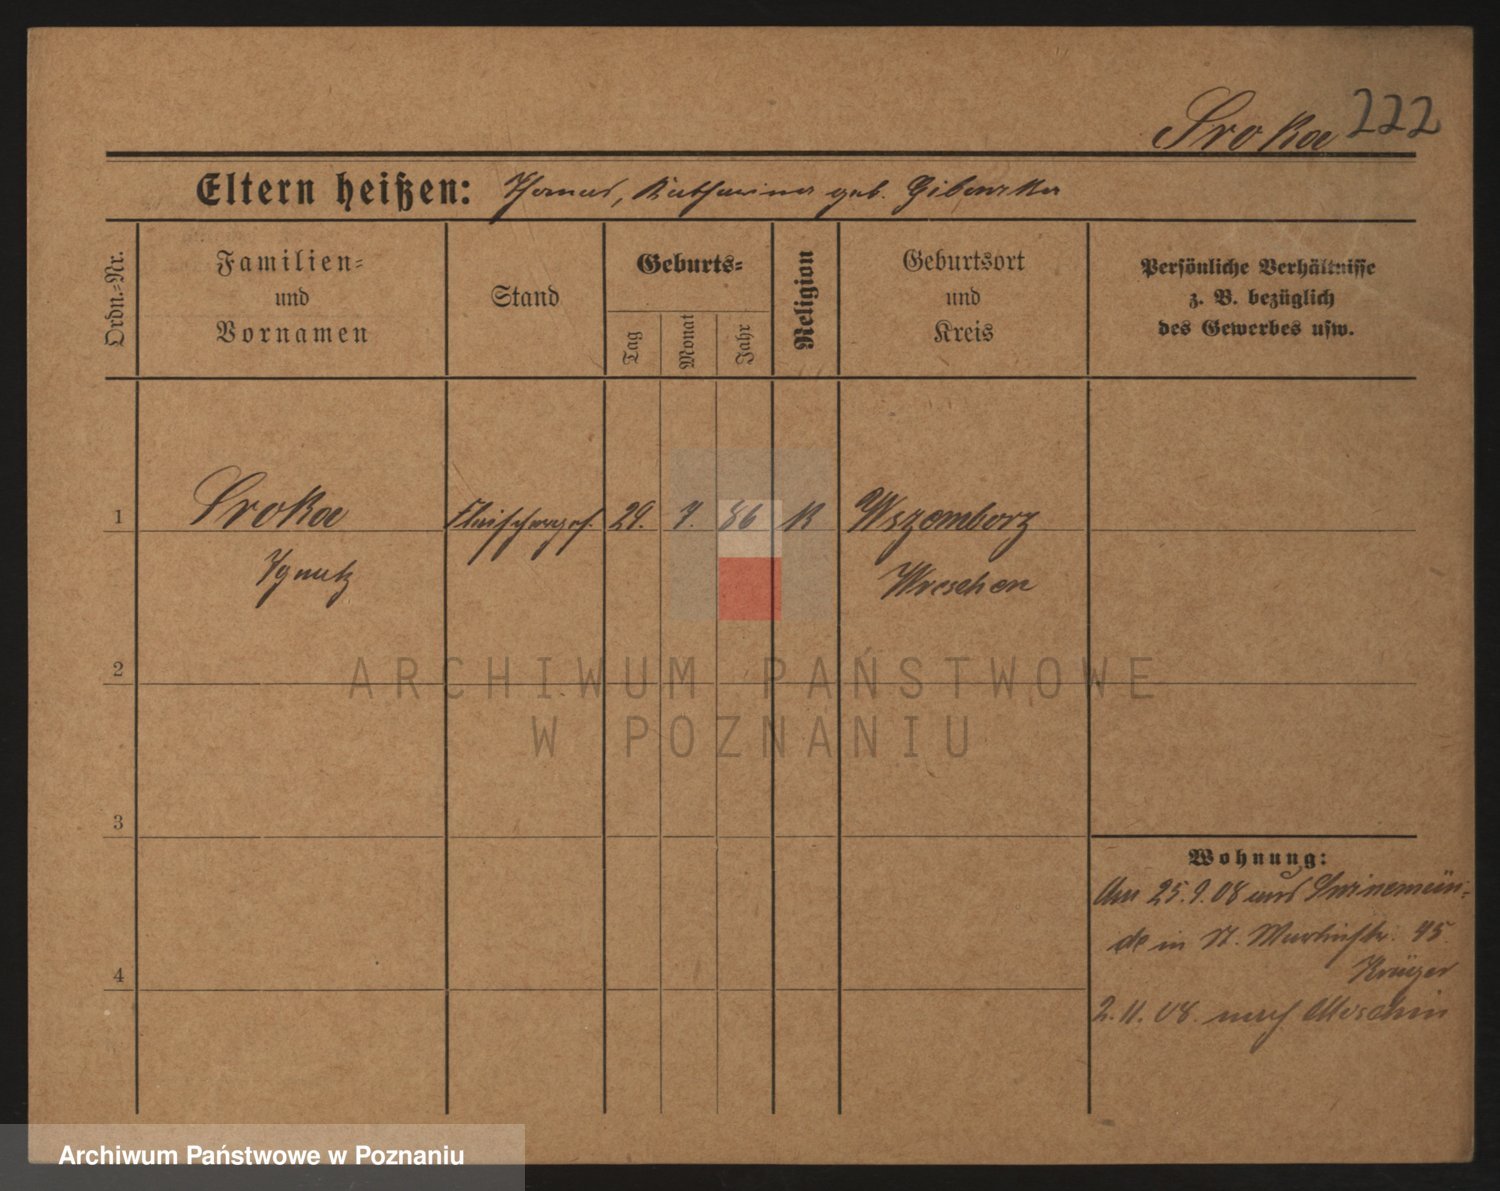 Sroka 222
Eltern heißen: Thomas, Katharina geb.
Ordn.-Nr.
Familien-
und
Vornamen
Stand
Geburts-
Tag
Monat
Jahr
Religion
Geburtsort
und
Kreis
Persönliche Verhältnisse
z. B. bezüglich
des Gewerbes usw.
1 Sroka Fleischerges. 29. 7. 86 K Wszemborz
Ignatz Wreschen
2
3
4
Wohnung:
Am 25.9.08 aus Swinemün-
de in St. Martinstr. 45
Krüger
2.11.08. nach Moschin
ARCHIWUM PAŃSTWOWE
W POZNANIU
Archiwum Państwowe w Poznaniu